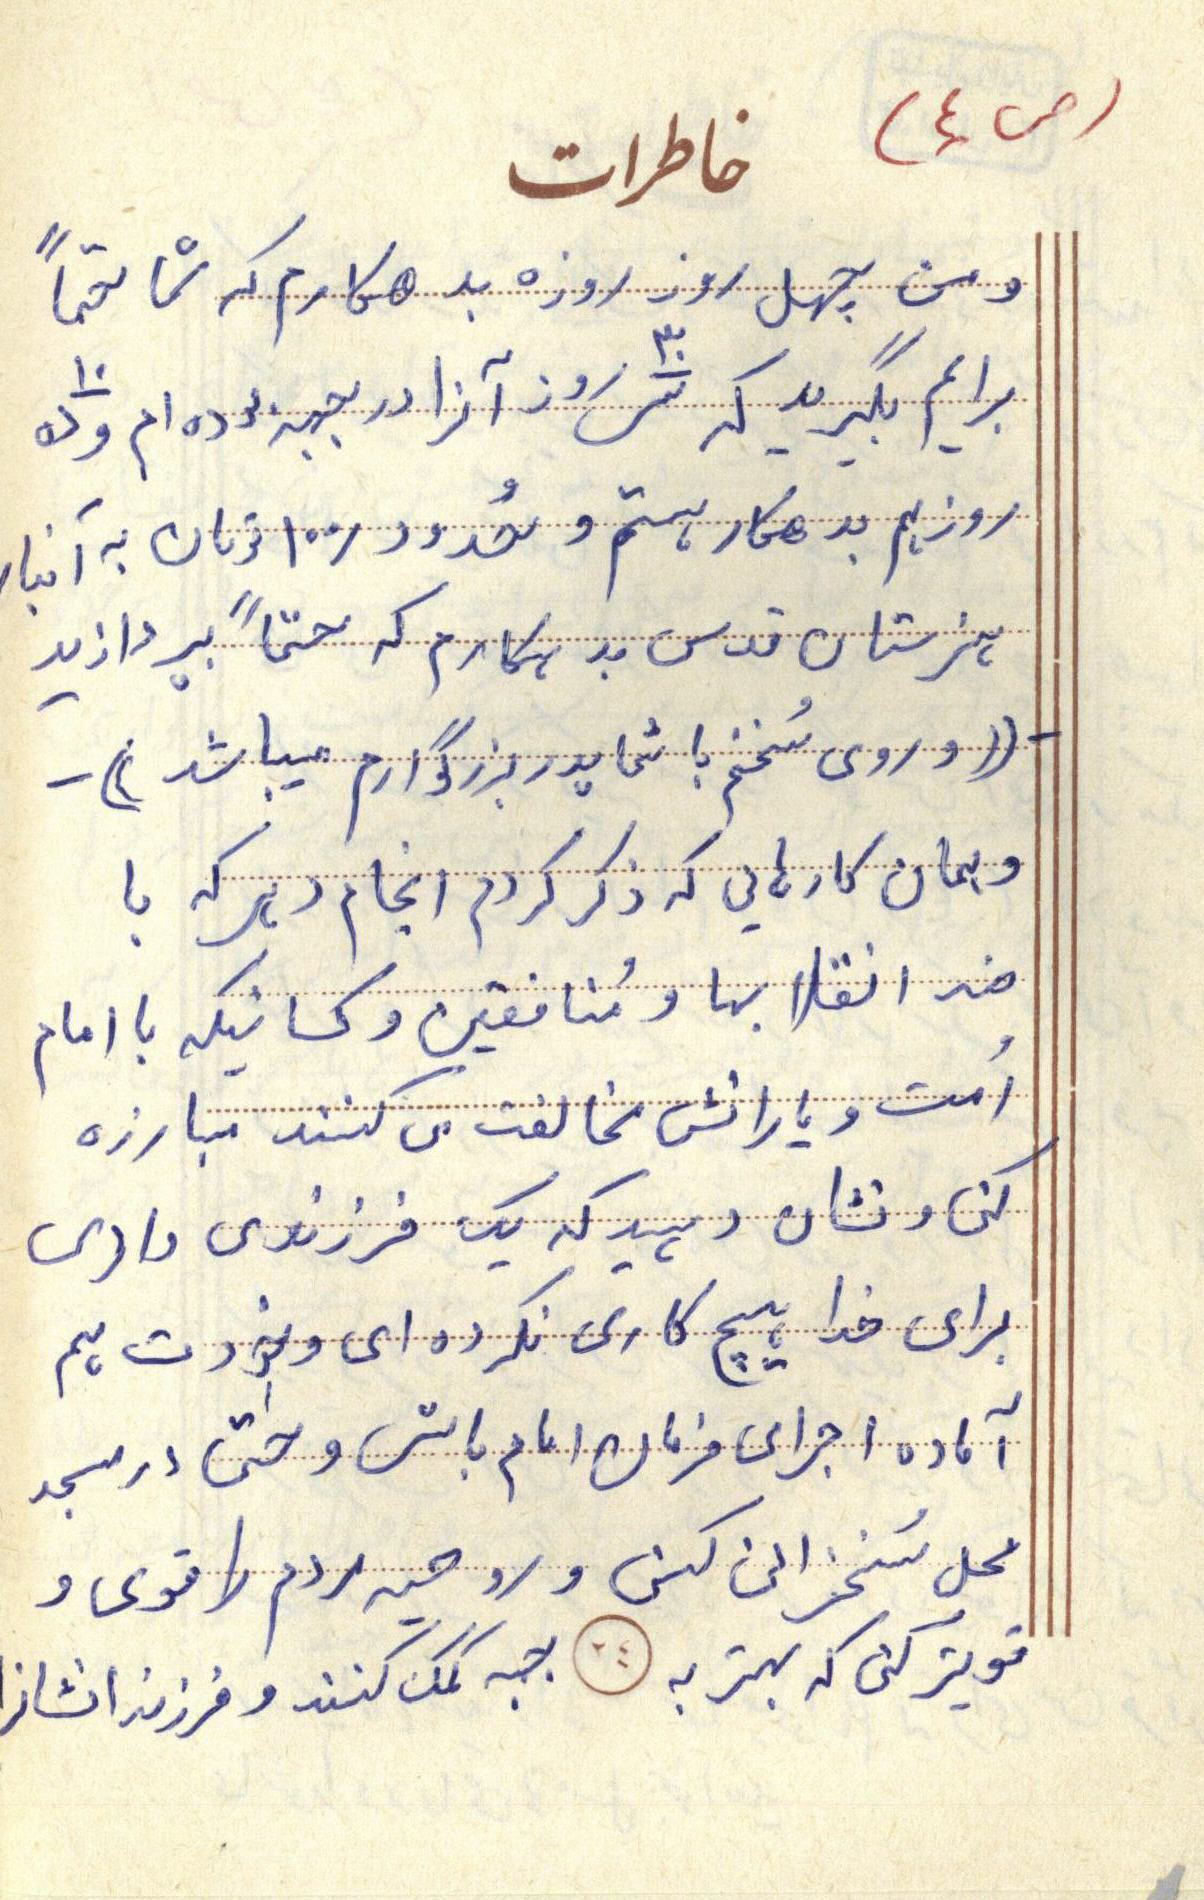 (ص ٤)
خاطرات
و من چهل روز روزه بدهکارم که شما حتماً
برایم بگیرید که سی ۳۰ روز آنرا در جبهه بوده ام و ده ۱۰
روز هم بدهکار هستم و حُدود ۱۰۰ تومان به آنبار
هنرستان قدس بدهکارم که حتماً بپردازید
- ((و روی سُخنم با شما پدر بزرگوارم میباشد)) -
و همان کارهایی که ذکر کردم انجام دهید که با
ضد انقلابها و مُنافقین و کسانیکه با امام
اُمت و یارانش مخالفت می کنند مبارزه
کنی و نشان دهید که یک فرزندی دادی
برای خدا هیچ کاری نکرده ای و خودت هم
آماده اجرای فرمان امام باش و حتی در مسجد
محل سُخنرانی کنی و روحیه مردم را قوی و
قویتر کنی که بهتر به جبهه کمک کنند و فرزندانشانرا
٢٤